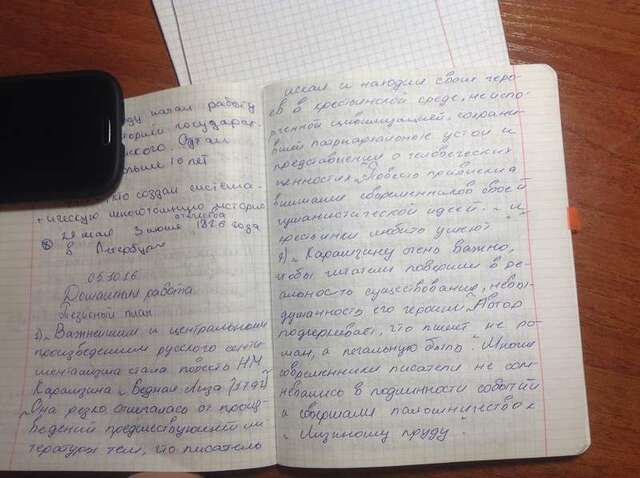 ду начал работу
государс-
ского. Отдал
больше 10 лет
создал система-
тическую многотомную историю
отечества
22 мая 3 июня 1826 года
в Петербург
05.10.16
Домашняя работа
Тезисный план
1) Важнейшим и центральным
произведением русского сенти-
ментализма стала повесть НМ
Карамзина „Бедная Лиза" (1792)
Она резко отличалась от произ-
ведений предшествующей ли-
тературы тем, что писатель
искал и находил своих геро-
ев в крестьянской среде, неиспо-
рченной цивилизацией, сохрани-
вшей патриархальные устои и
представления о человеческих
ценностях. Повесть привлекла
внимание современников своей
гуманистической идеей: „и
крестьянки любить умеют"
2) Карамзину очень важно,
чтобы читатели поверили в ре-
альность существования, невы-
думанность его героини. Автор
подчеркивает, что пишет не ро-
ман, а печальную быль". Многие
современники писателя не сом-
невались в подлинности событий
и совершали паломничество к
„Лизиному пруду".